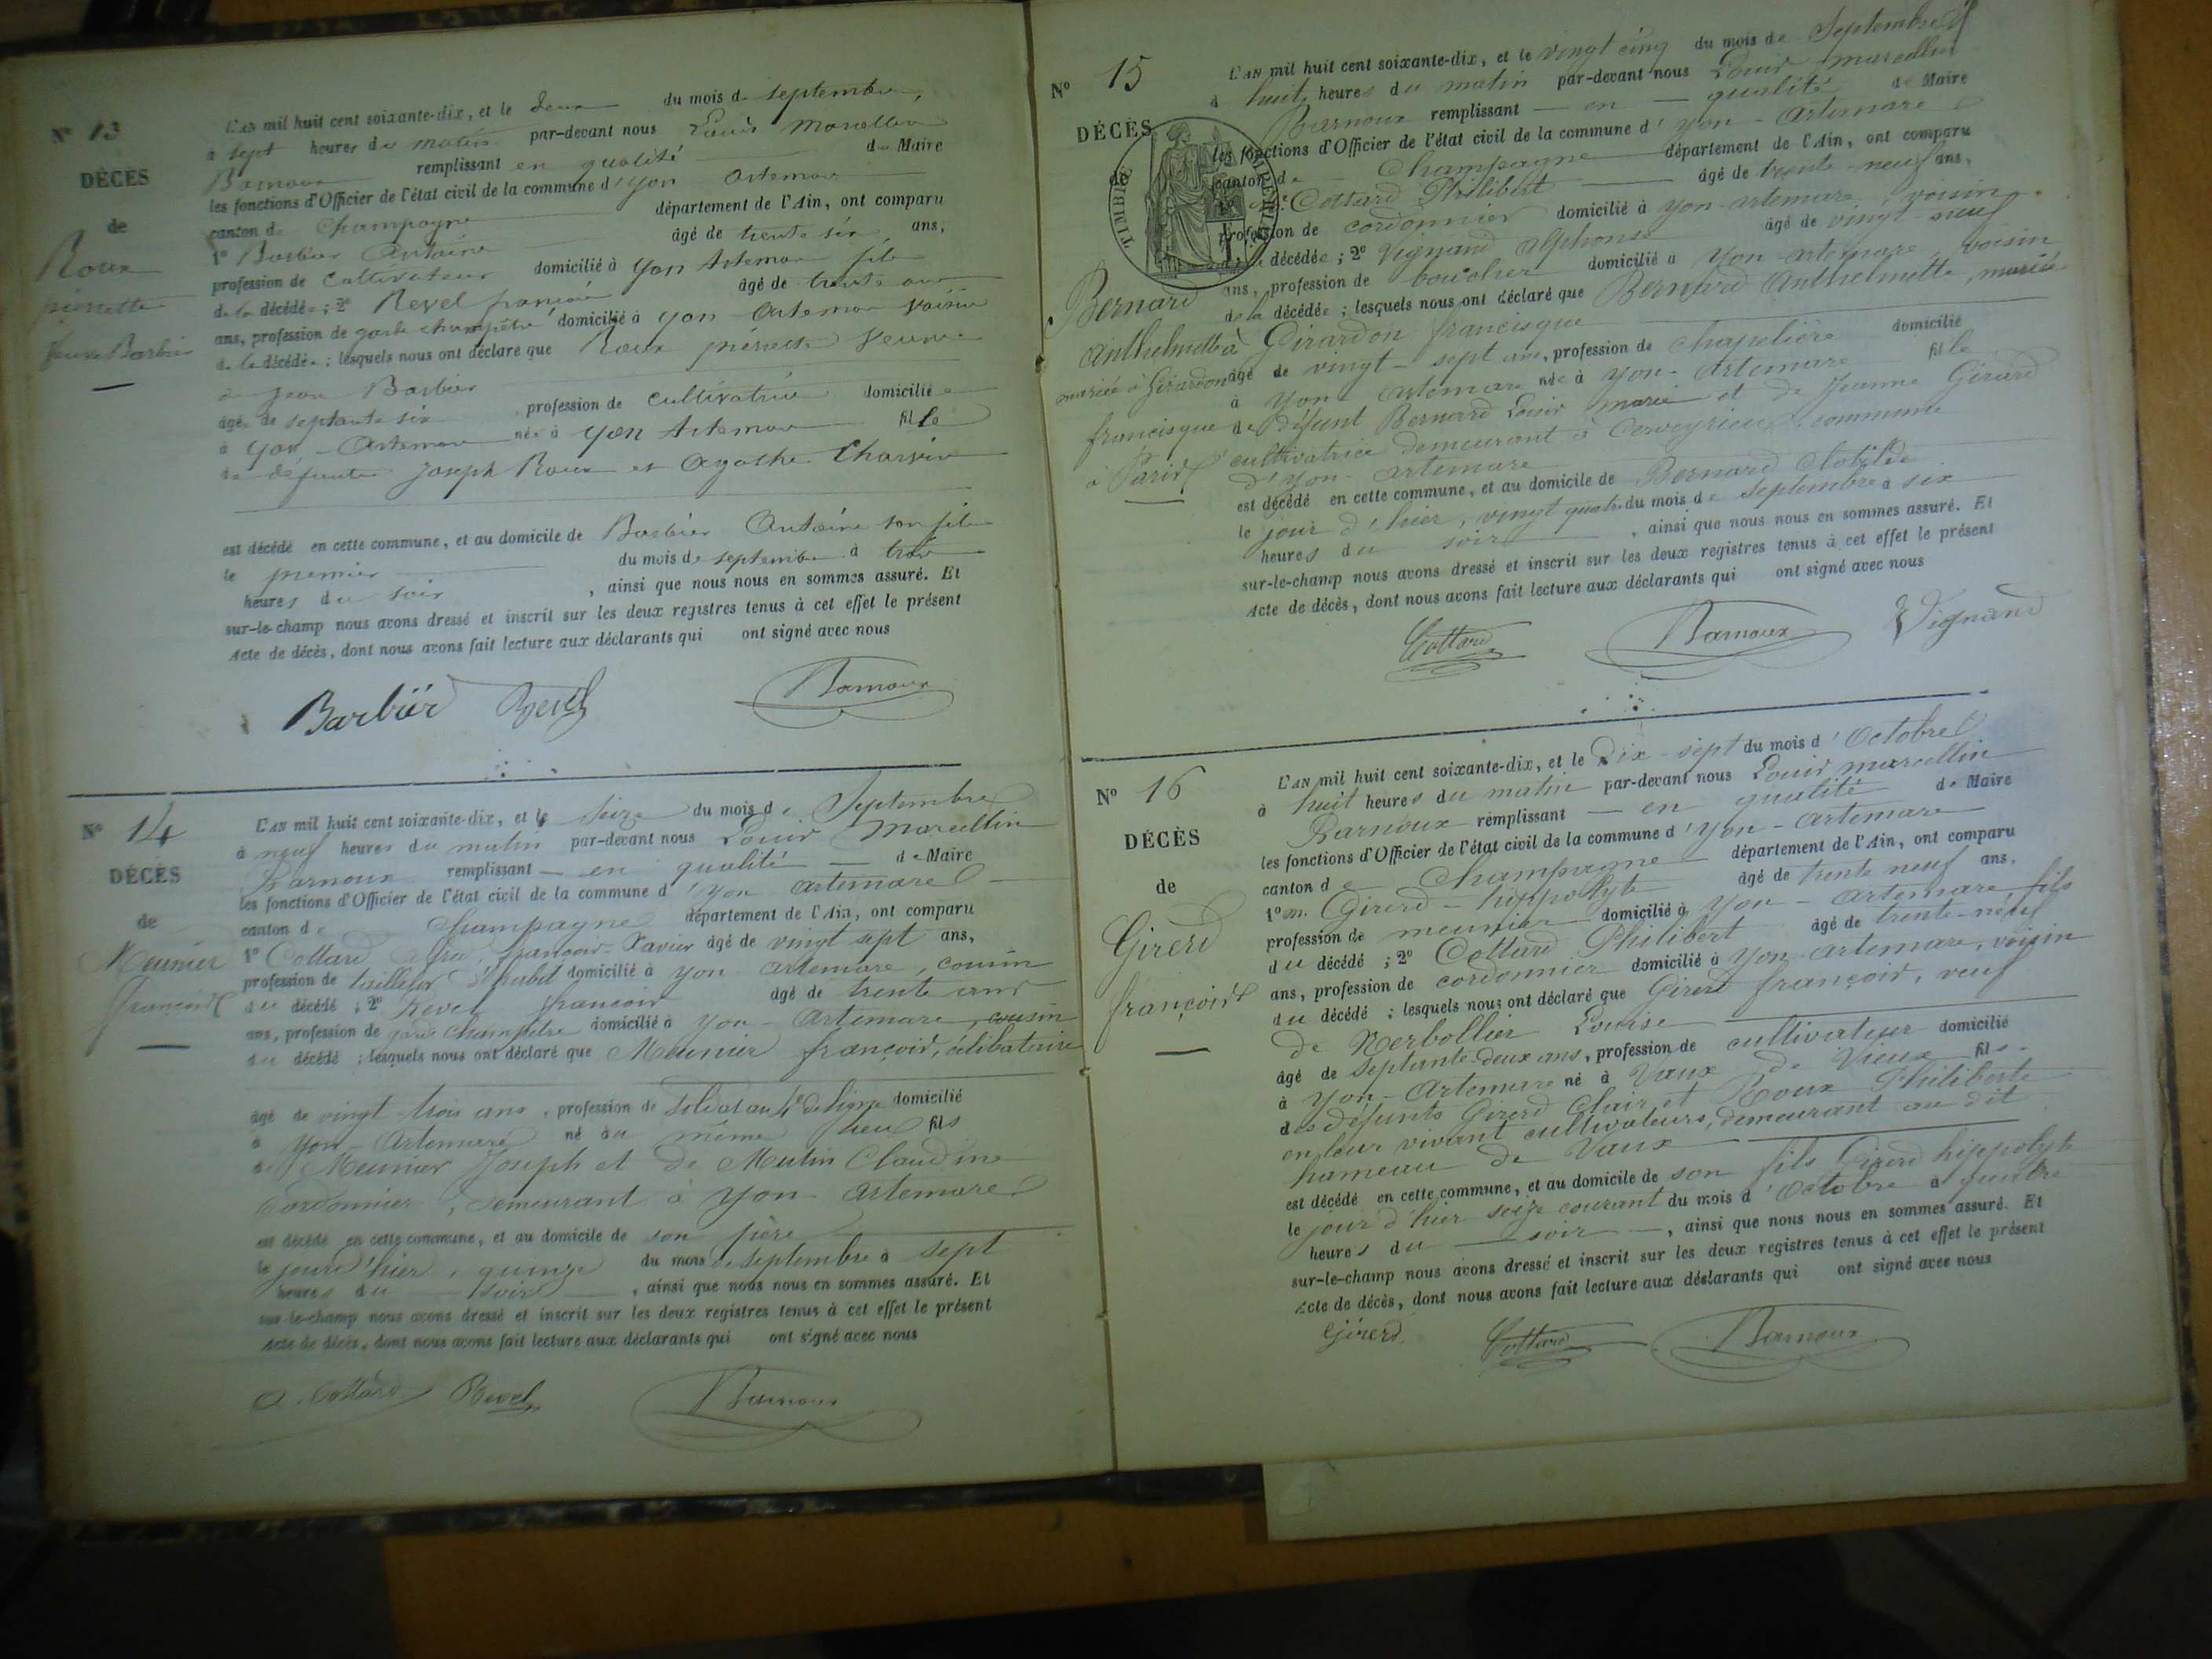 N° 13
DÉCÈS
de
Roux
pierrette
Veuve Barbier
L'AN mil huit cent soixante-dix, et le deux du mois de septembre,
à sept heures du matin par-devant nous Louis Marcellin
Barnoux remplissant en qualité de Maire
les fonctions d'Officier de l'état civil de la commune d'yon artemare
canton de Champagne département de l'Ain, ont comparu
1° Barbier Antoine âgé de trente six ans,
profession de Cultivateur domicilié à yon Artemare fils
de la décédée; 2° Revel françois âgé de trente
ans, profession de garde champêtre domicilié à yon - Artemare voisin
de la décédée; lesquels nous ont déclaré que Roux pierrette Veuve
de Jean Barbier
âgée de septante six profession de cultivatrice domiciliée
à yon - Artemare née à yon Artemare fille
de défunts Joseph Roux et Agathe Charvin
est décédé en cette commune, et au domicile de Barbier Antoine son fils
le premier du mois de septembre à trois
heures du soir, ainsi que nous nous en sommes assuré. Et
sur-le-champ nous avons dressé et inscrit sur les deux registres tenus à cet effet le présent
Acte de décès, dont nous avons fait lecture aux déclarants qui ont signé avec nous
Barbiér Revel Barnoux
N° 14
DÉCÈS
de
Meunier
françois
L'AN mil huit cent soixante-dix, et le seize du mois de Septembre
à neuf heures du matin par-devant nous Louis Marcellin
Barnoux remplissant - en qualité - de Maire
les fonctions d'Officier de l'état civil de la commune d'yon artemare
canton de Champagne département de l'Ain, ont comparu
1° Cottard françois-Xavier âgé de vingt sept ans,
profession de tailleur d'habit domicilié à yon artemare, cousin
du décédé; 2° Revel françois âgé de trente
ans, profession de garde champêtre domicilié à yon - Artemare, cousin
du décédé; lesquels nous ont déclaré que Meunier françois, célibataire
âgé de vingt trois ans, profession de soldat au de ligne domicilié
à yon - Artemare né au même lieu fils
de Meunier Joseph et de Mutin Claudine
Cordonnier, demeurant à yon - Artemare
est décédé en cette commune, et au domicile de son père
le jour d'hier, quinze du mois de septembre à sept
heures du soir, ainsi que nous nous en sommes assuré. Et
sur-le-champ nous avons dressé et inscrit sur les deux registres tenus à cet effet le présent
Acte de décès, dont nous avons fait lecture aux déclarants qui ont signé avec nous
A. Cottard Revel Barnoux
N° 15
DÉCÈS
de
TIMBRE IMPERIAL
Bernard
Anthelmette
mariée à Girardon
francisque
à Paris
L'AN mil huit cent soixante-dix, et le vingt cinq du mois de Septembre
à huit heures du matin par-devant nous Louis marcellin
Barnoux remplissant - en - qualité de Maire
les fonctions d'Officier de l'état civil de la commune d'yon - Artemare
canton de Champagne département de l'Ain, ont comparu
Cottard Philibert âgé de trente neuf ans,
profession de cordonnier domicilié à yon-artemare, voisin
décédée; 2° Vignand alphonse âgé de vingt-neuf
ans, profession de boucher domicilié à yon-artemare, voisin
de la décédée; lesquels nous ont déclaré que Bernard Anthelmette, mariée
à Girardon francisque
âgé de vingt-sept ans, profession de Chapelière domicilié
à yon - artemare née à yon - Artemare fille
de défunt Bernard Louis marie et de Jeanne Girard
cultivatrice demeurant à Cerveyrieu, commune
d'yon-artemare
est décédé en cette commune, et au domicile de Bernard Clotilde
le jour d'hier, vingt quatre du mois de septembre à six
heures du soir, ainsi que nous nous en sommes assuré. Et
sur-le-champ nous avons dressé et inscrit sur les deux registres tenus à cet effet le présent
Acte de décès, dont nous avons fait lecture aux déclarants qui ont signé avec nous
Cottard Barnoux Vignand
N° 16
DÉCÈS
de
Girerd
françois
L'AN mil huit cent soixante-dix, et le Dix-sept du mois d'Octobre
à huit heures du matin par-devant nous Louis marcellin
Barnoux remplissant - en qualité de Maire
les fonctions d'Officier de l'état civil de la commune d'yon - Artemare
canton de Champagne département de l'Ain, ont comparu
1° m. Girerd - hippolyte âgé de trente neuf ans,
profession de meunier domicilié à yon - Artemare, fils
du décédé; 2° Cottard Philibert âgé de trente-neuf
ans, profession de cordonnier domicilié à yon-artemare, voisin
du décédé; lesquels nous ont déclaré que Girerd françois, veuf
de Nerbollier Louise
âgé de septante-deux ans, profession de cultivateur domicilié
à yon - Artemare né à Vaux de Vieux fils
des défunts Girerd Clair et Roux Philiberte
en leur vivant cultivateurs, demeurant au dit
hameau de Vaux
est décédé en cette commune, et au domicile de son fils Girerd hippolyte
le jour d'hier seize courant du mois d'Octobre à quatre
heures du soir -, ainsi que nous nous en sommes assuré. Et
sur-le-champ nous avons dressé et inscrit sur les deux registres tenus à cet effet le présent
Acte de décès, dont nous avons fait lecture aux déclarants qui ont signé avec nous
Girerd Cottard Barnoux